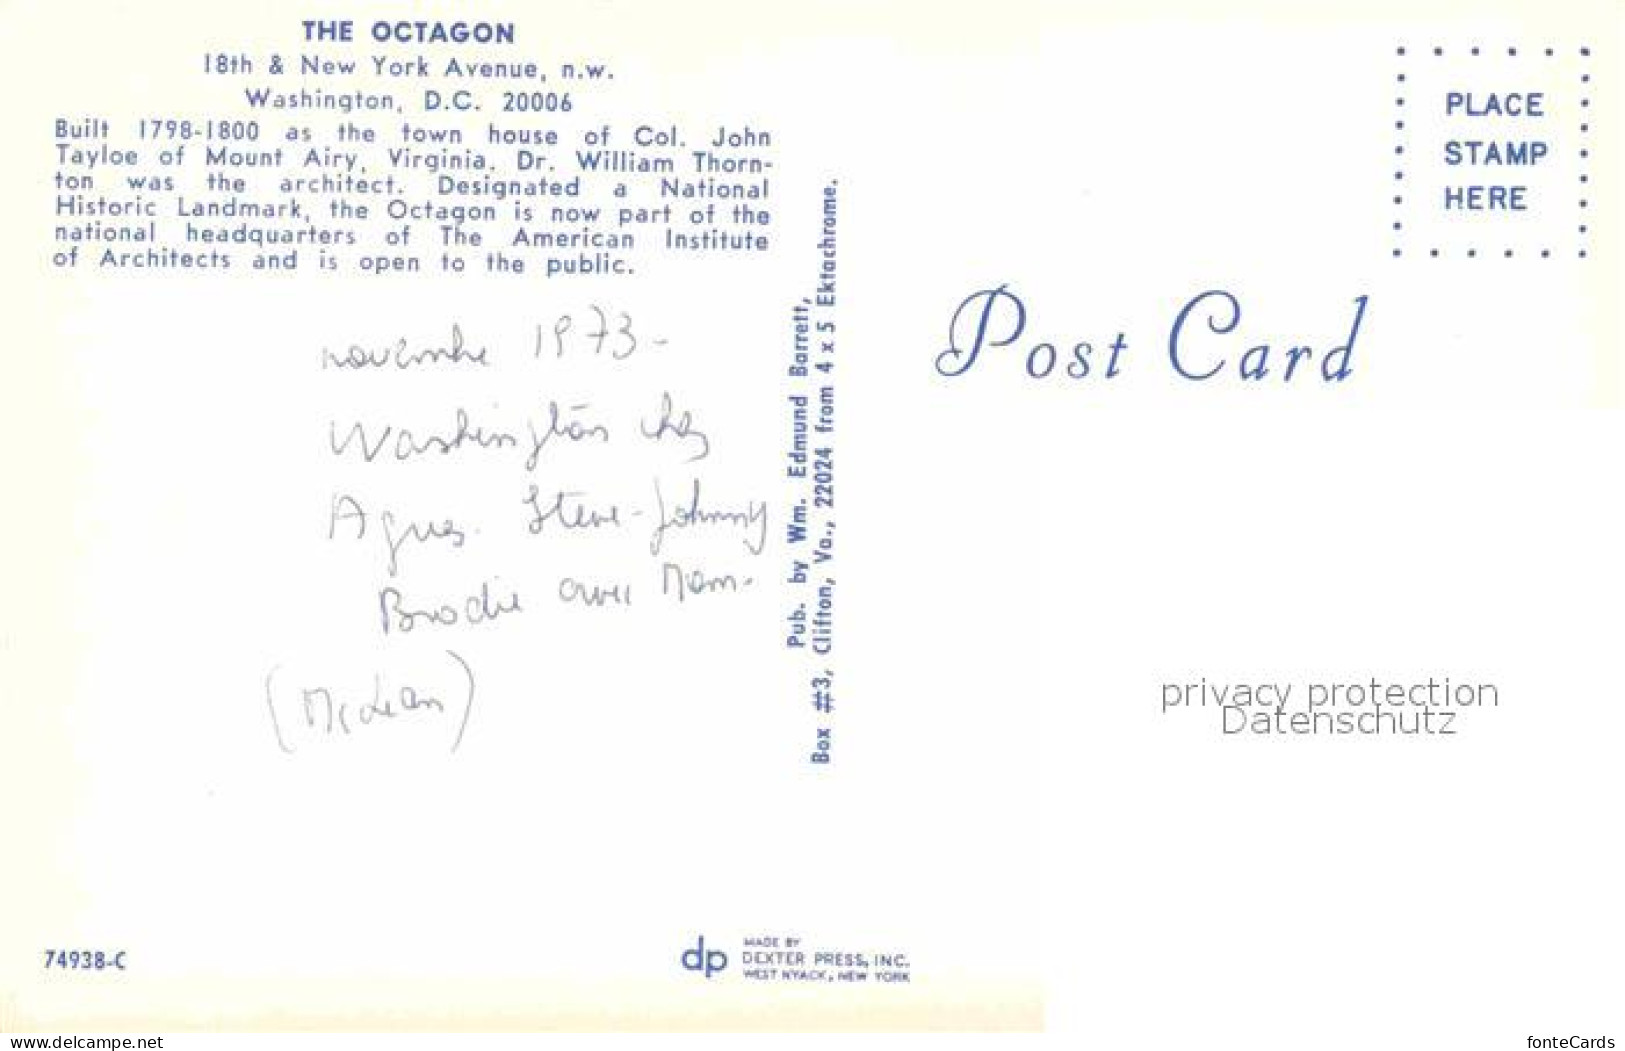 THE OCTAGON
18th & New York Avenue, n.w.
Washington, D.C. 20006
Built 1798-1800 as the town house of Col. John
Tayloe of Mount Airy, Virginia. Dr. William Thorn-
ton was the architect. Designated a National
Historic Landmark, the Octagon is now part of the
national headquarters of The American Institute
of Architects and is open to the public.
novembre 1973 -
Washington chez
Agnes. Steve - Johnny
Brodie avec Mam.
(McLean)
74938-C
Pub. by Wm. Edmund Barrett,
Box #3, Clifton, Va., 22024 from 4 x 5 Ektachrome.
dp
MADE BY
DEXTER PRESS, INC.
WEST NYACK, NEW YORK
PLACE
STAMP
HERE
Post Card
privacy protection
Datenschutz
www.delcampe.net
fonteCards